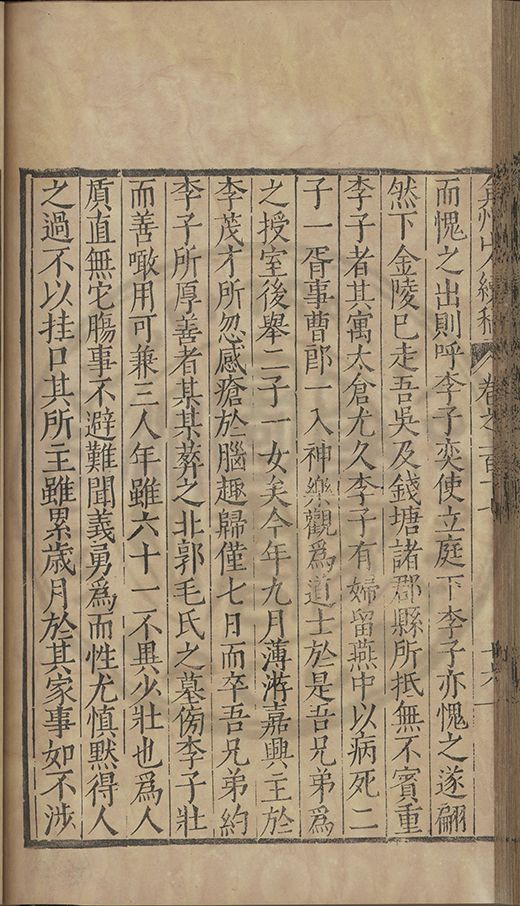 弇州山人續稿 卷之一百十
而愧之出則呼李子奕使立庭下李子亦愧之遂翩
然下金陵已走吾吳及錢塘諸郡縣所抵無不賓重
李子者其寓太倉尤久李子有婦留燕中以病死二
子一胥事曹郎一入神樂觀為道士於是吾兄弟為
之授室後舉二子一女矣今年九月薄游嘉興主於
李茂才所忽感瘡於腦趣歸僅七日而卒吾兄弟約
李子所厚善者某某葬之北郭毛氏之墓傍李子壯
而善噉用可兼三人年雖六十一不異少壯也為人
質直無宅腸事不避難聞義勇為而性尤慎黙得人
之過不以挂口其所主雖累歲月於其家事如不涉